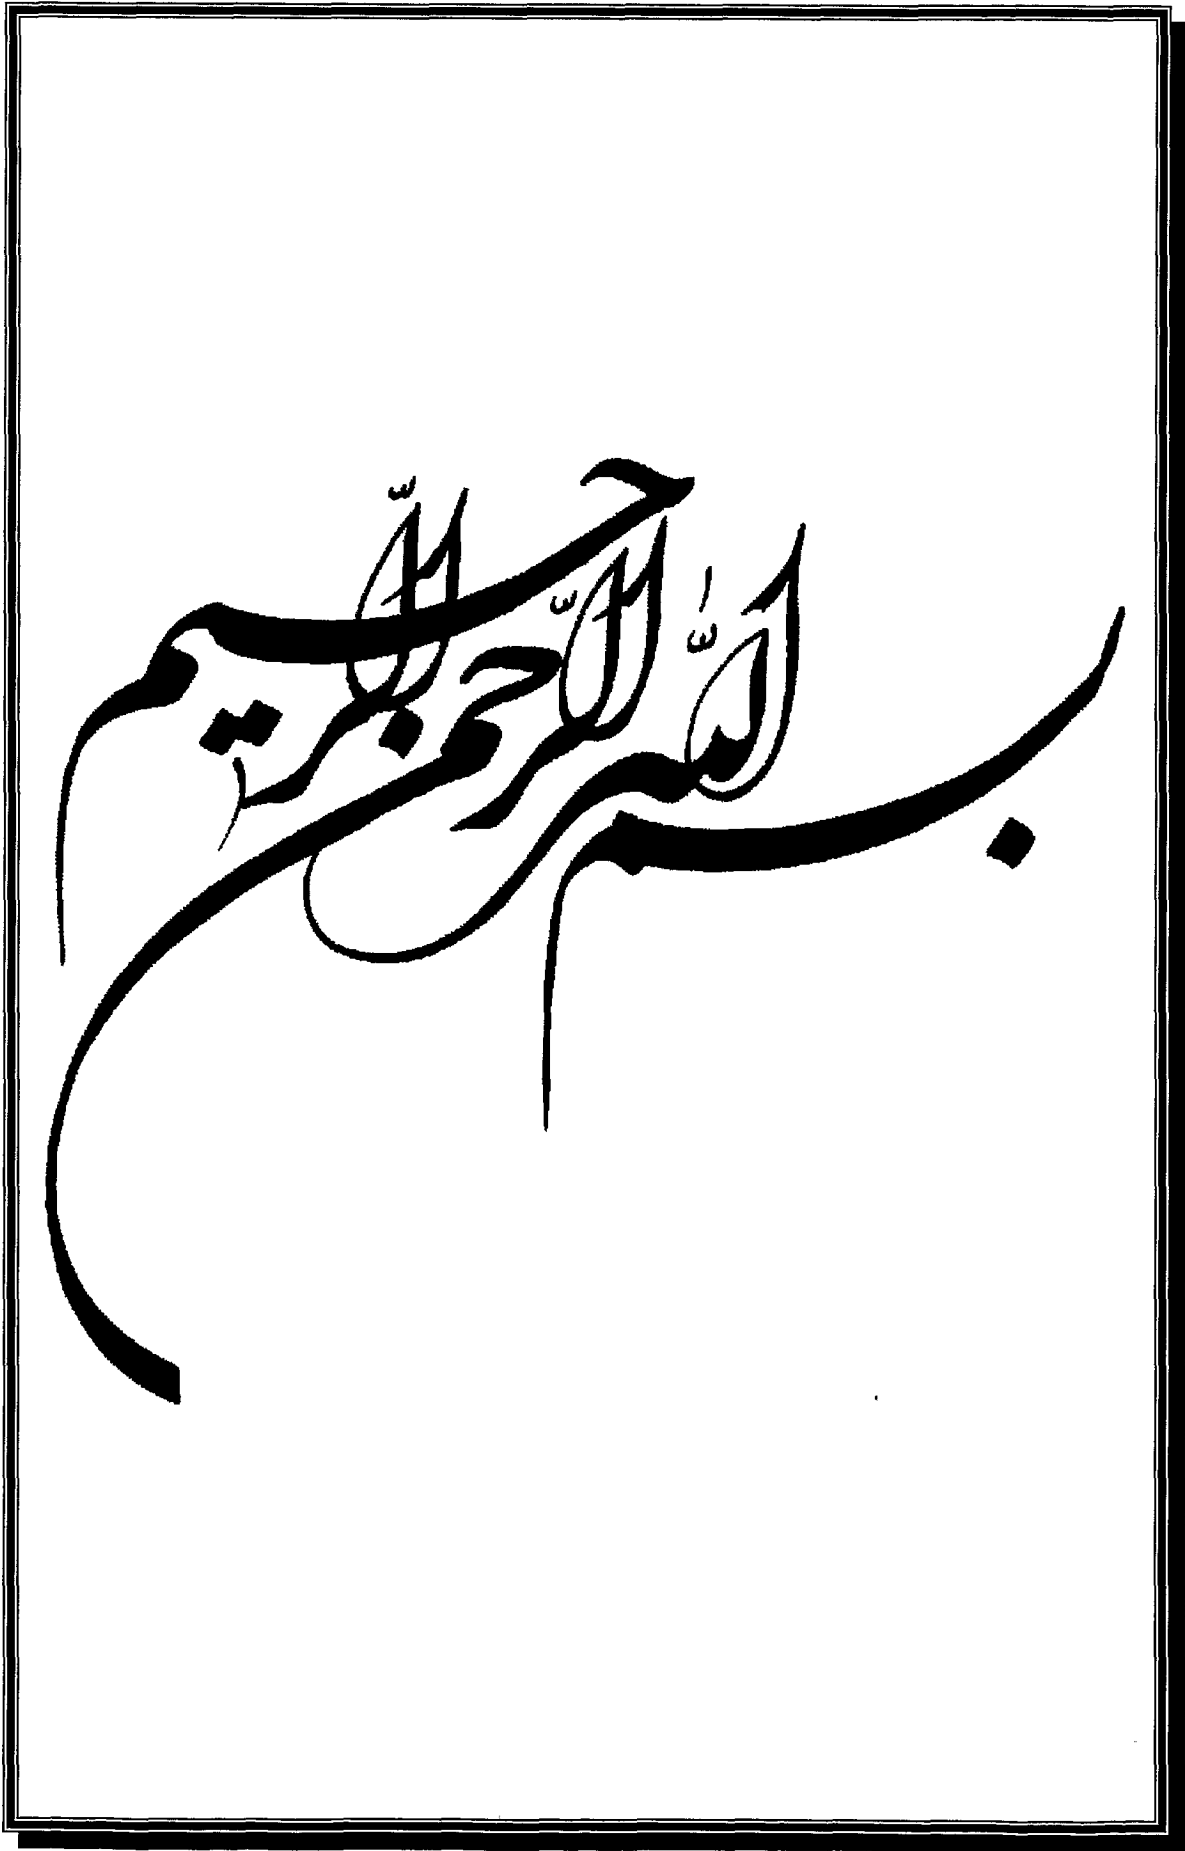 بسم اللّٰه الرّحمن الرّحیم